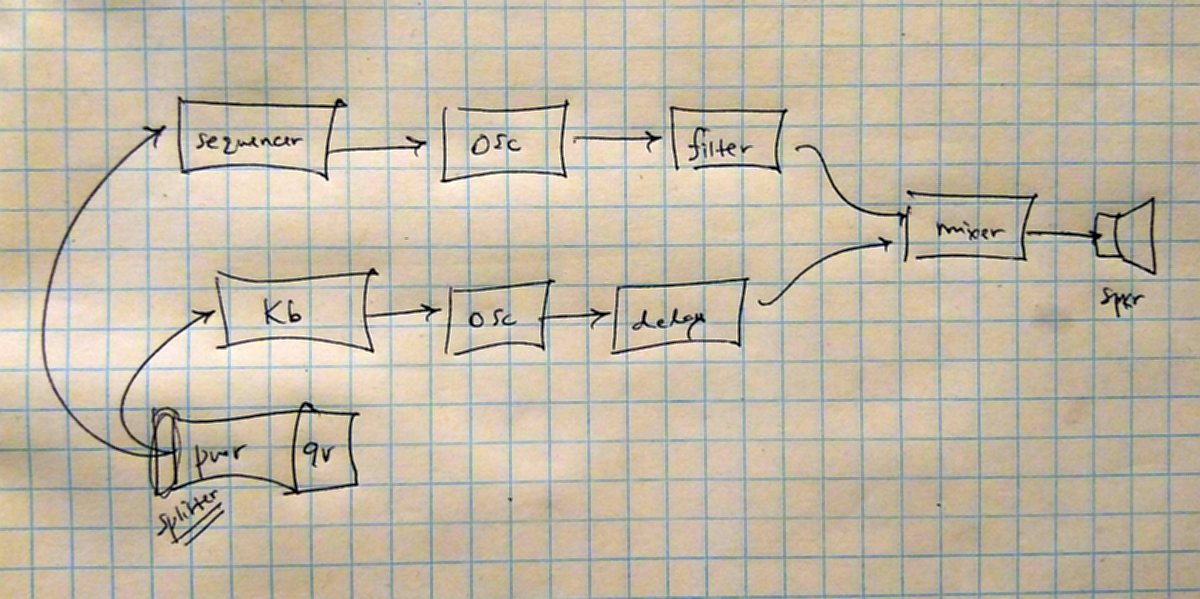 sequencer
OSC
filter
mixer
spkr
Kb
OSC
delay
pwr
9v
splitter